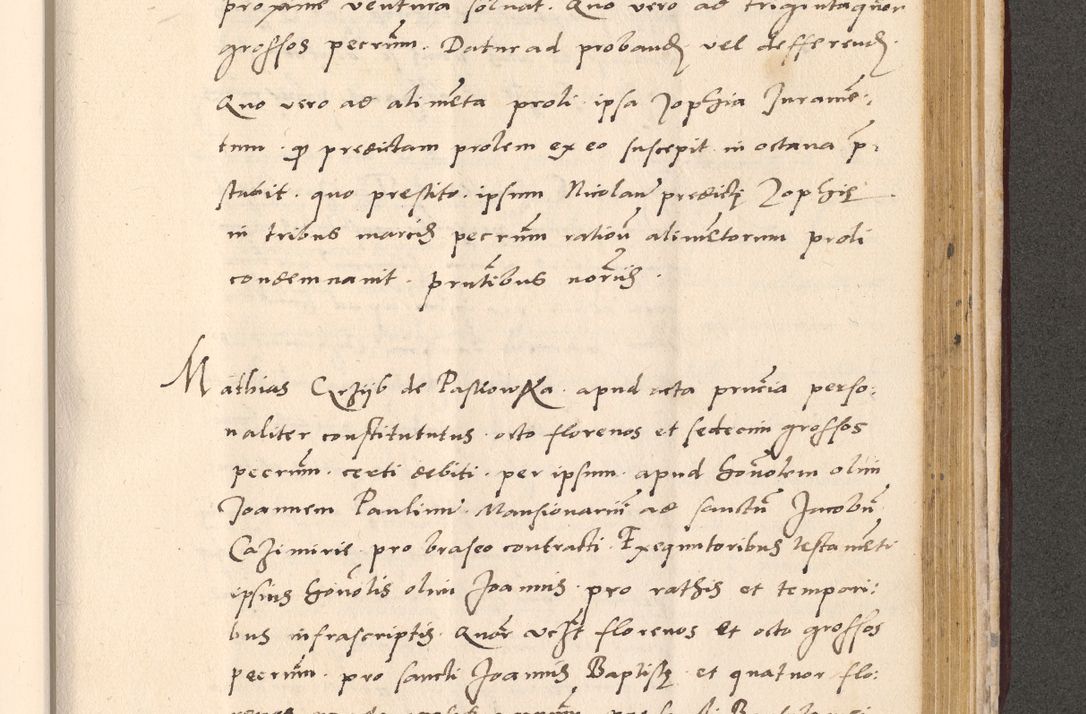 proxime ventura solvat. Quo vero ad triginta quor
grossos pecũm. Datur ad proband vel defferend.
Quo vero ad alimẽta proli ipsa Zophia Iuramẽ:
tum. ꝙ predictam prolem ex eo suscepit in octava p̃:
stabit. quo prestito. ipsum Nicolaũ predictę Zophię
in tribus marcis pecũm ratioñ alimẽtorum proli
condemnavit. pñtibus noriis.
Mathias Crzijb de Paskowka. apud acta pñcia perso:
naliter constitututus. octo florenos et sedecim grossos
pecũm. certi debiti. per ipsum. apud honolem olim
Joannem Paulinum Mansionariũ ad sanctũ Jacobũ
Cazimiris pro braseo contracti. Exequutoribus testamẽti
ipsius honolis olim Joannis. pro rathis et tempori:
bus infrascriptis. Quor florenos et octo grossos
pecũm. pro sancti Joannis Baptistę. et quatuor flo: